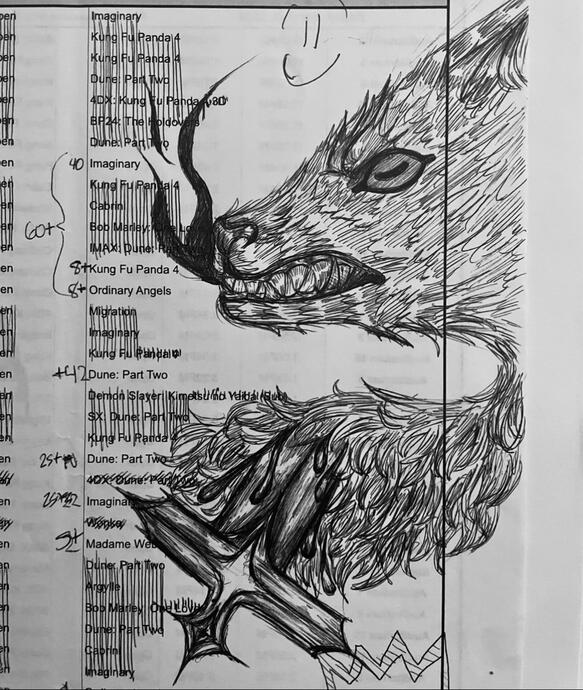 pen Imaginary
en Kung Fu Panda 4
en Kung Fu Panda 4
en Dune: Part Two
en 4DX: Kung Fu Panda 4 3D
en BF24: The Holdovers
en Dune: Part Two
en 40 Imaginary
en Kung Fu Panda 4
en Cabrini
60+ en Bob Marley: One Love
en IMAX: Dune: Part Two
en 8+ Kung Fu Panda 4
en 8+ Ordinary Angels
en Migration
en Imaginary
en Kung Fu Panda 4
en +42 Dune: Part Two
en Demon Slayer: Kimetsu no Yaiba (Sub)
en SX: Dune: Part Two
en Kung Fu Panda 4
en 25+ Dune: Part Two
en 4DX: Dune: Part Two
en Imaginary
en Wonka
en 5+ Madame Web
en Dune: Part Two
en Argylle
en Bob Marley: One Love
en Dune: Part Two
en Cabrini
en Imaginary